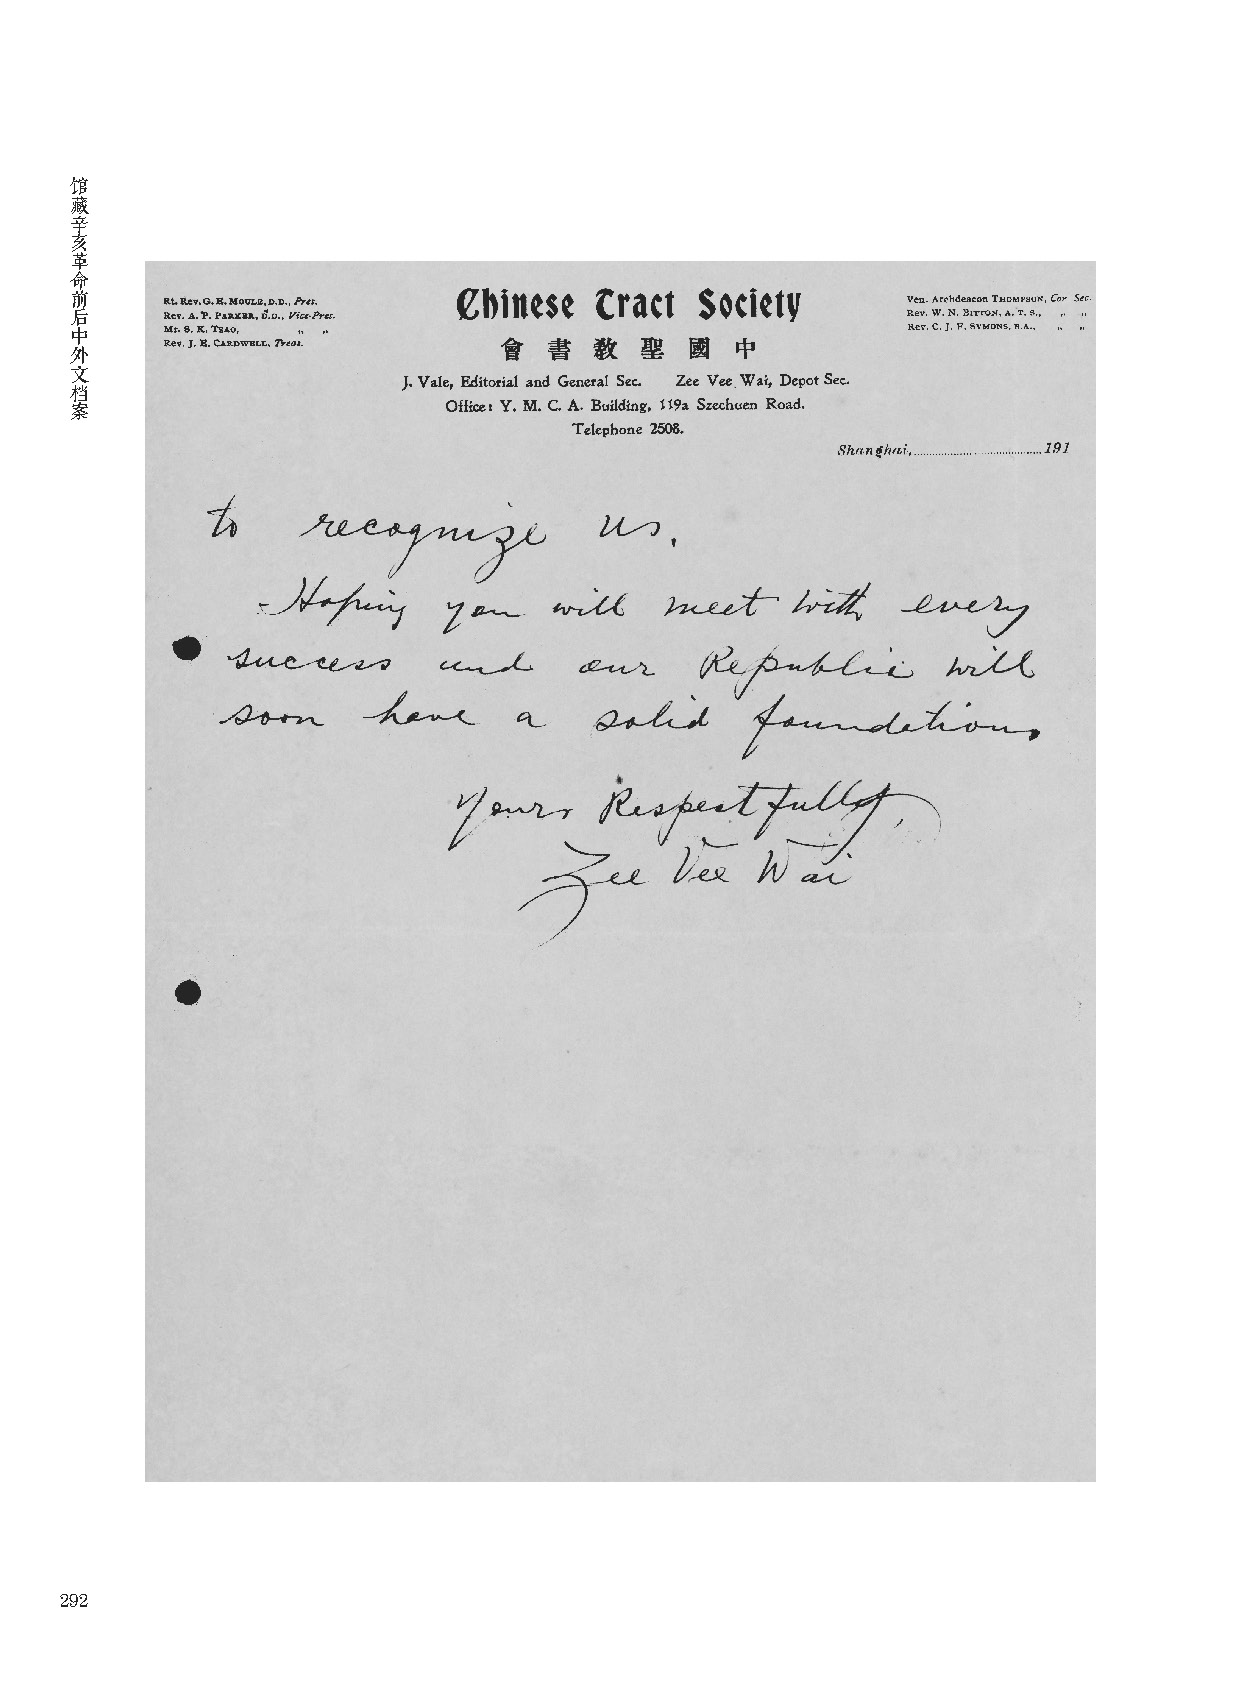 馆藏辛亥革命前后中外文档案
Rt. Rev. G. E. MOULE, D.D., Pres.
Rev. A. P. PARKER, D.D., Vice-Pres.
Mr. S. K. TSAO, " "
Rev. J. E. CARDWELL, Treas.
Chinese Tract Society
會書教聖國中
J. Vale, Editorial and General Sec. Zee Vee Wai, Depot Sec.
Office: Y. M. C. A. Building, 119a Szechuen Road.
Telephone 2508.
Ven. Archdeacon THOMPSON, Cor Sec.
Rev. W. N. BITTON, A. T. S., " "
Rev. C. J. F. SYMONS, B.A., " "
Shanghai, 191
to recognize us.
Hoping you will meet with every
success and our Republic will
soon have a solid foundation.
Yours Respectfully,
Zee Vee Wai
292